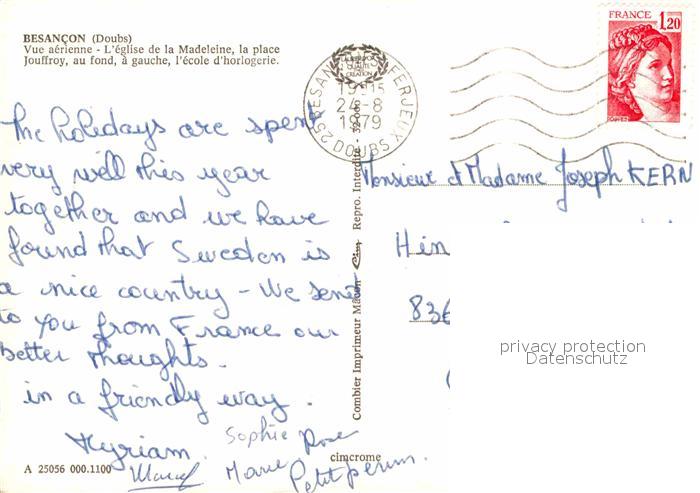 BESANÇON (Doubs)
Vue aérienne - L'église de la Madeleine, la place
Jouffroy, au fond, à gauche, l'école d'horlogerie.
FRANCE
1,20
19H15
24-8
1979
25 BESANÇON
FERJEUX
DOUBS
QUALITE
CREATION
The holidays are spent
very well this year
together and we have
found that Sweden is
a nice country - We send
to you from France our
better thoughts.
in a friendly way.
Myriam. Sophie Rose
Marcel Marie Petitperrin.
Monsieur et Madame Joseph KERN
Hin
836
privacy protection
Datenschutz
Combier Imprimeur Mâcon Cim Repro. Interdite
cimcrome
A 25056 000.1100